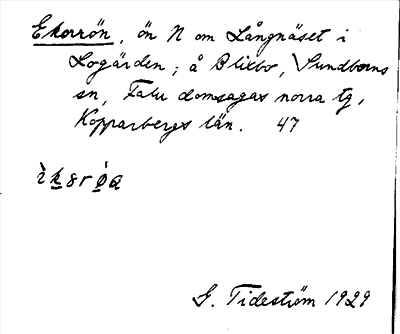 Ekorrön, ön N om Långnäset i
Logärden; å Blixbo, Sundborns
sn, Falu domsagas norra tg,
Kopparbergs län. 47
G. Tideström 1929